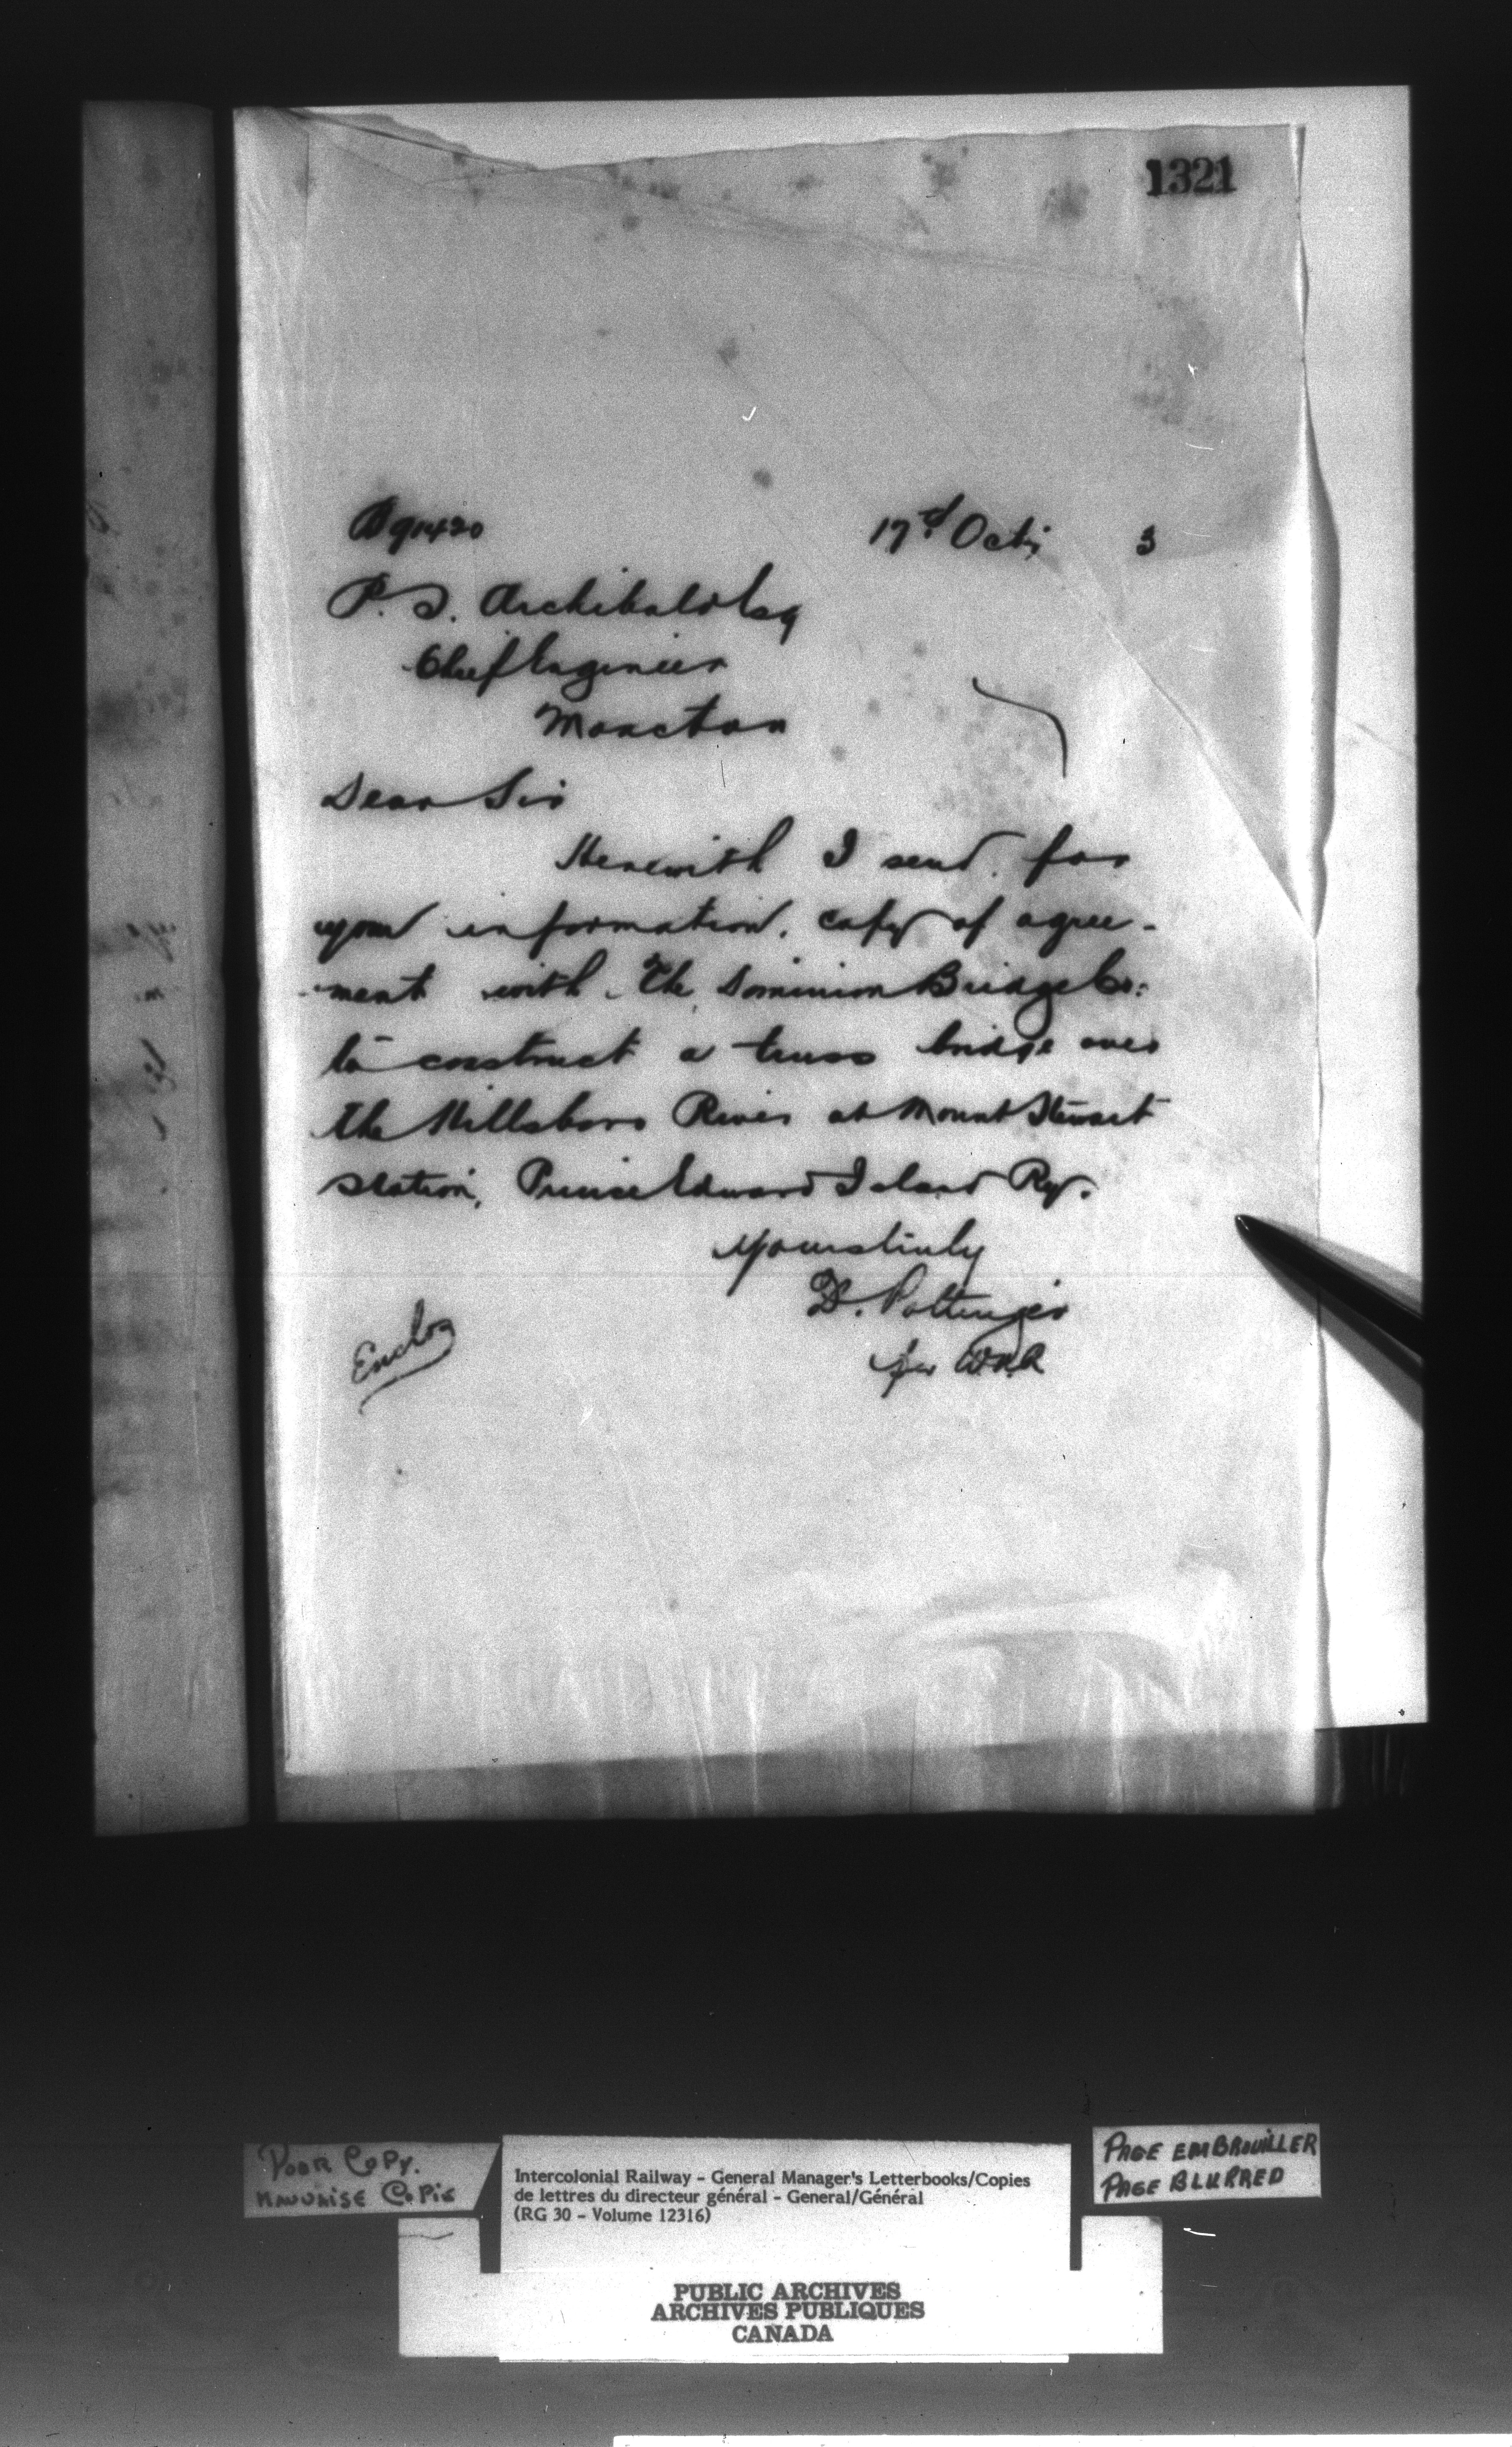 1321
17th Oct; 3
P. S. Archibald Esq
Chief Engineer
Moncton
Dear Sir
Herewith I send, for
your information, copy of agree-
ment with The Dominion Bridge Co:
to construct a truss bridge over
the Hillsboro River at Mount Stewart
station, Prince Edward Island Ry.
Yours truly
D. Pottinger
Enclos
Poor Copy.
Mauvaise Copie
Intercolonial Railway - General Manager's Letterbooks/Copies
de lettres du directeur général - General/Général
(RG 30 - Volume 12316)
Page embrouiller
Page blurred
PUBLIC ARCHIVES
ARCHIVES PUBLIQUES
CANADA